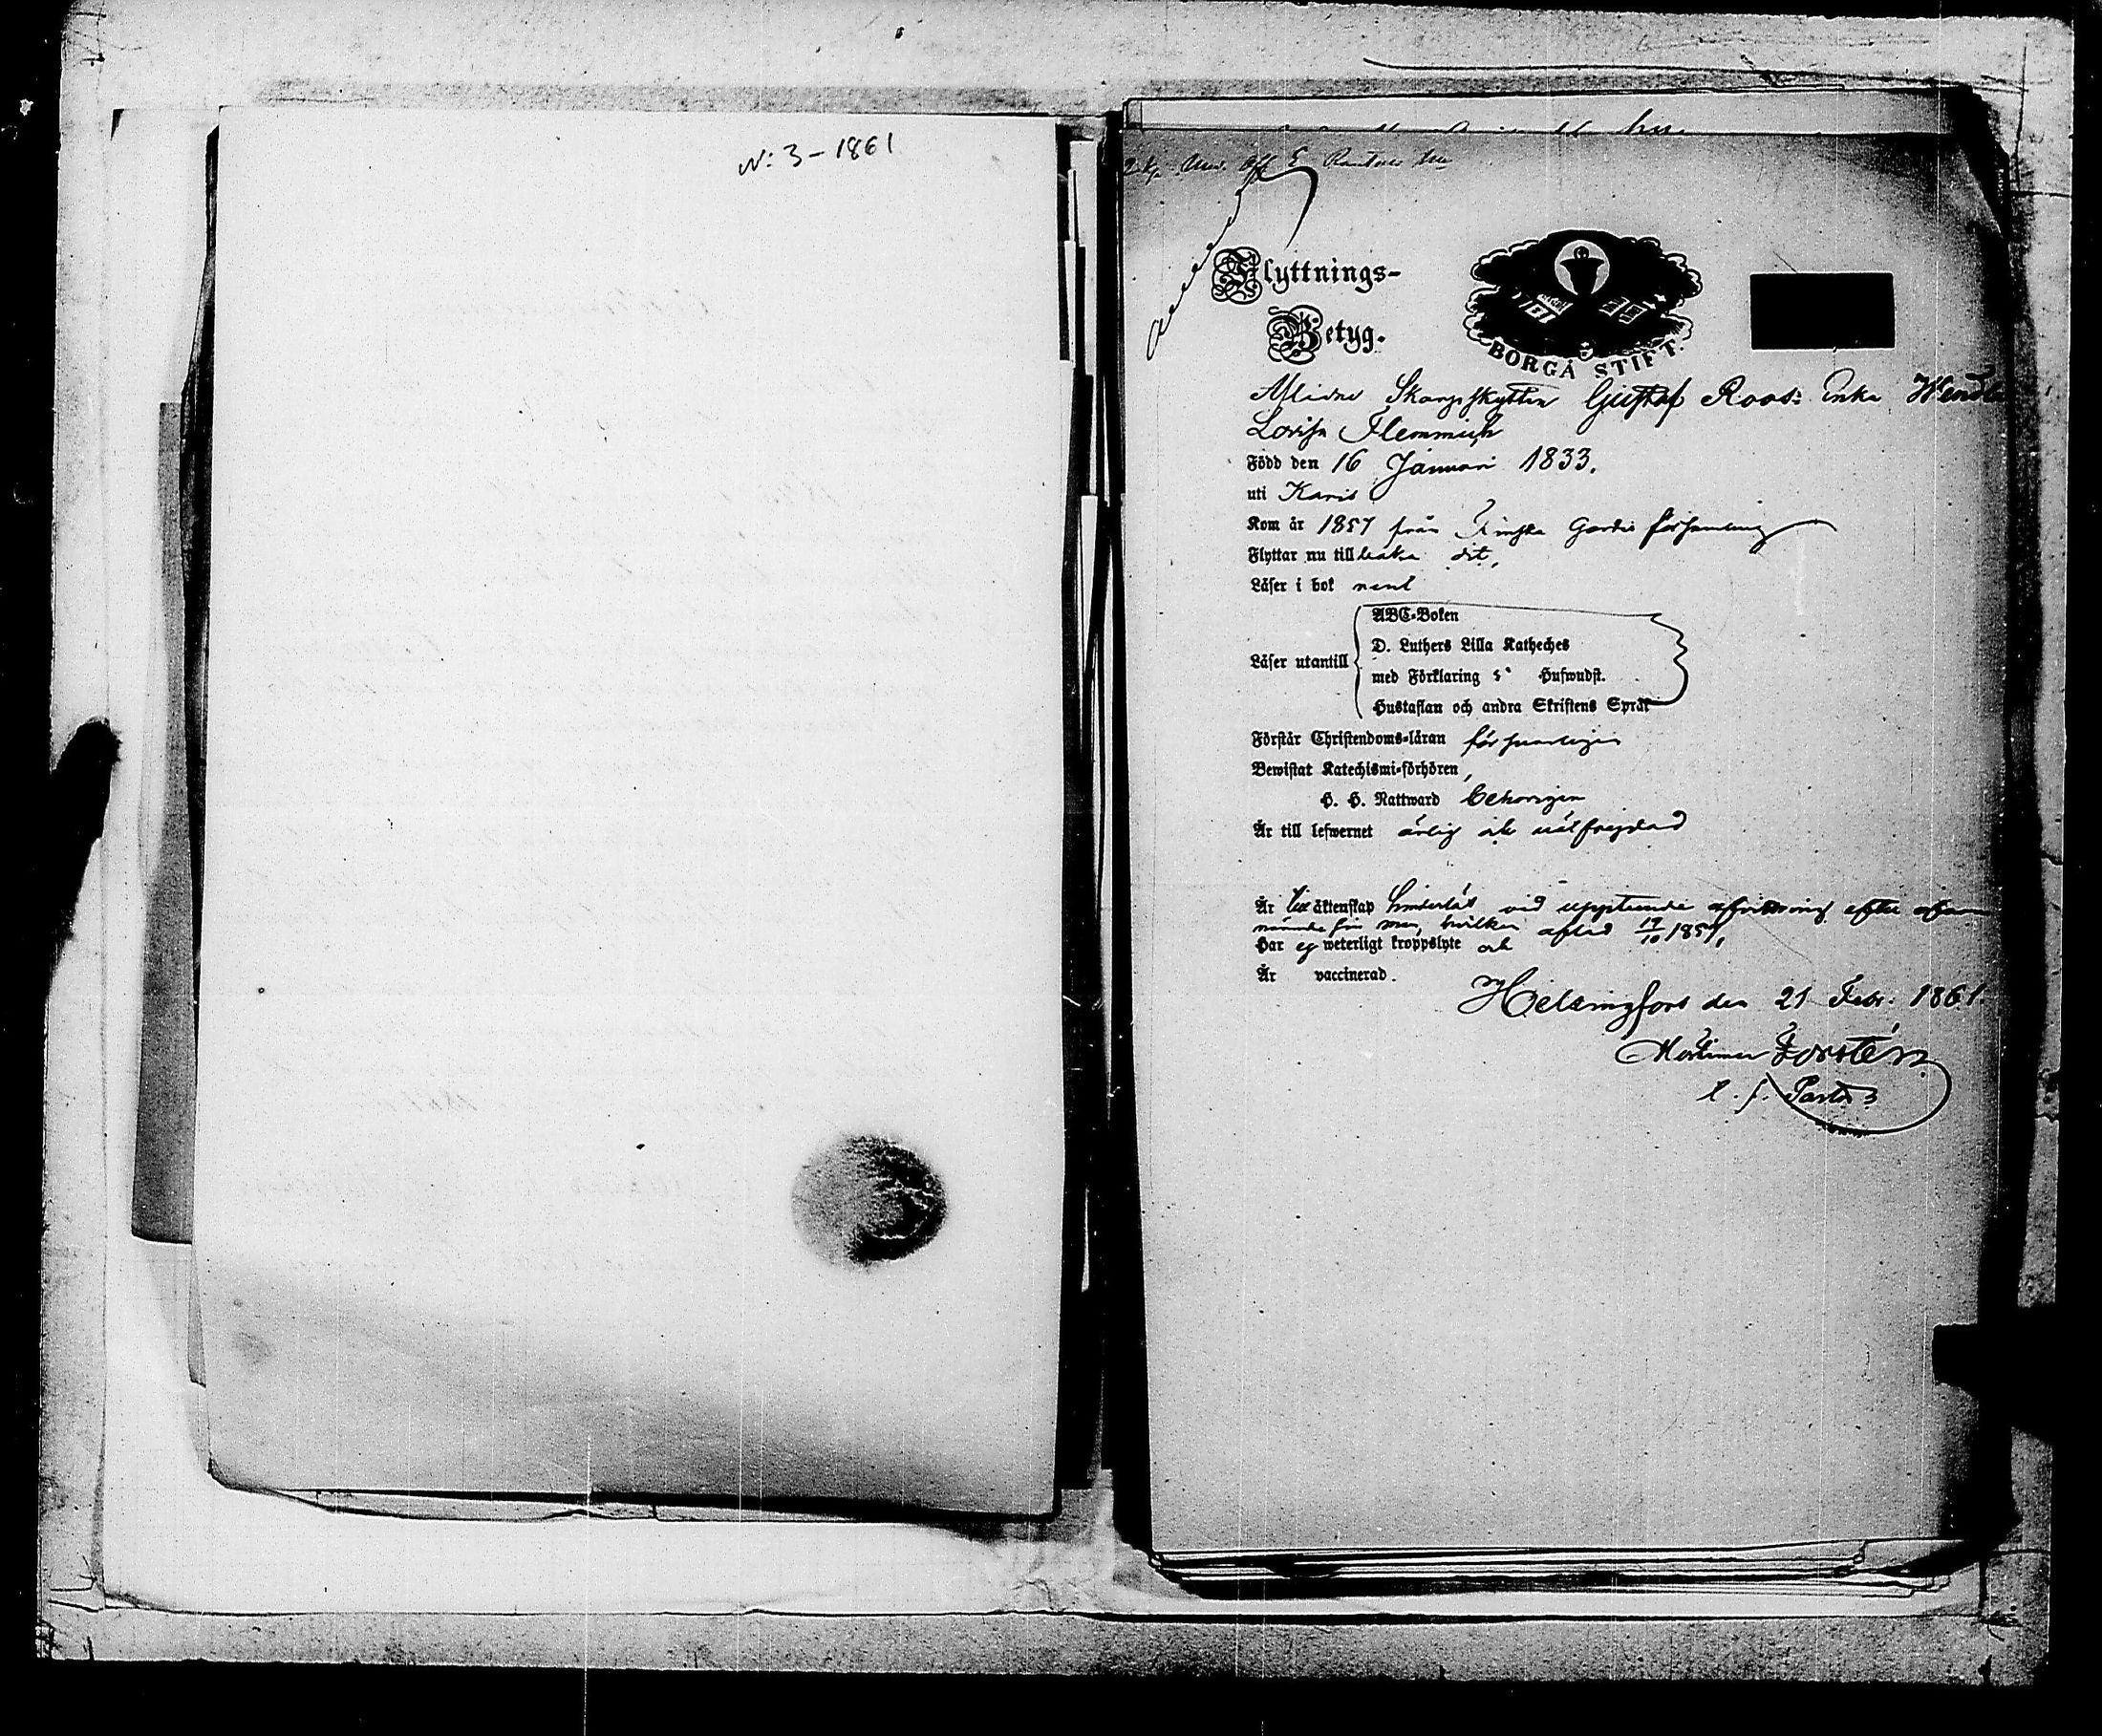 N: 3 - 1861
Flyttnings-
Betyg.
BORGÅ STIFT.
Aflidne Skarpskytten Gustaf Roos: Enka Wendla
Lovisa Flemmich
Född den 16 Januari 1833.
uti Karis
Kom år 1857 från Finska Gardes församling
Flyttar nu till baka dit,
Läser i bok rent
ABC-Boken
D. Luthers Lilla Katheches
Läser utantill
med Förklaring 5 Hufwudst.
Hustaflan och andra Skriftens Språk
Förstår Christendoms-läran försvarligen
Bewistat Katechismi-förhören,
H. H. Nattward behörigen
Är till lefwernet ärlig och välfrejdad
Är till äktenskap hinderlös vid uppteende afvittring efter ofvan
nämnde sin man, hvilken afled 19/10 1857,
Har ej weterligt kroppslyte och
Är vaccinerad.
Helsingfors den 21 Febr. 1861.
Mortimer Forstén